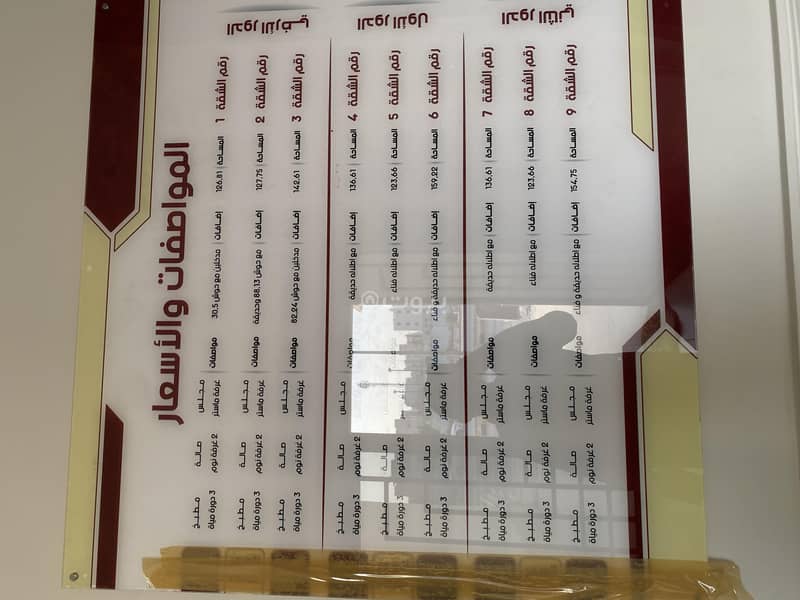 المواصفات والأسعار
الدور الأرضي
رقم الشقة 1 المساحة 126.81 إضافات مدخلين مع حوش 30.5 مواصفات مجلس صالة مطبخ
غرفة ماستر 2 غرفة نوم 3 دورة مياة
رقم الشقة 2 المساحة 127.75 إضافات مع حوش 88.13 وحديقة مواصفات مجلس صالة مطبخ
غرفة ماستر 2 غرفة نوم 3 دورة مياة
رقم الشقة 3 المساحة 142.61 إضافات مدخلين مع حوش 82.24 مواصفات مجلس صالة مطبخ
غرفة ماستر 2 غرفة نوم 3 دورة مياة
الدور الأول
رقم الشقة 4 المساحة 136.61 إضافات مع اطلاله حديقة مواصفات مجلس صالة مطبخ
غرفة ماستر 2 غرفة نوم 3 دورة مياة
رقم الشقة 5 المساحة 123.66 إضافات مع اطلاله فناء مواصفات مجلس صالة مطبخ
غرفة ماستر 2 غرفة نوم 3 دورة مياة
رقم الشقة 6 المساحة 159.22 إضافات مع اطلاله حديقة و فناء مواصفات مجلس صالة مطبخ
غرفة ماستر 2 غرفة نوم 3 دورة مياة
الدور الثاني
رقم الشقة 7 المساحة 136.61 إضافات مع اطلاله حديقة مواصفات مجلس صالة مطبخ
غرفة ماستر 2 غرفة نوم 3 دورة مياة
رقم الشقة 8 المساحة 123.66 إضافات مع اطلاله فناء مواصفات مجلس صالة مطبخ
غرفة ماستر 2 غرفة نوم 3 دورة مياة
رقم الشقة 9 المساحة 154.75 إضافات مع اطلاله حديقة و فناء مواصفات مجلس صالة مطبخ
غرفة ماستر 2 غرفة نوم 3 دورة مياة
بيوت